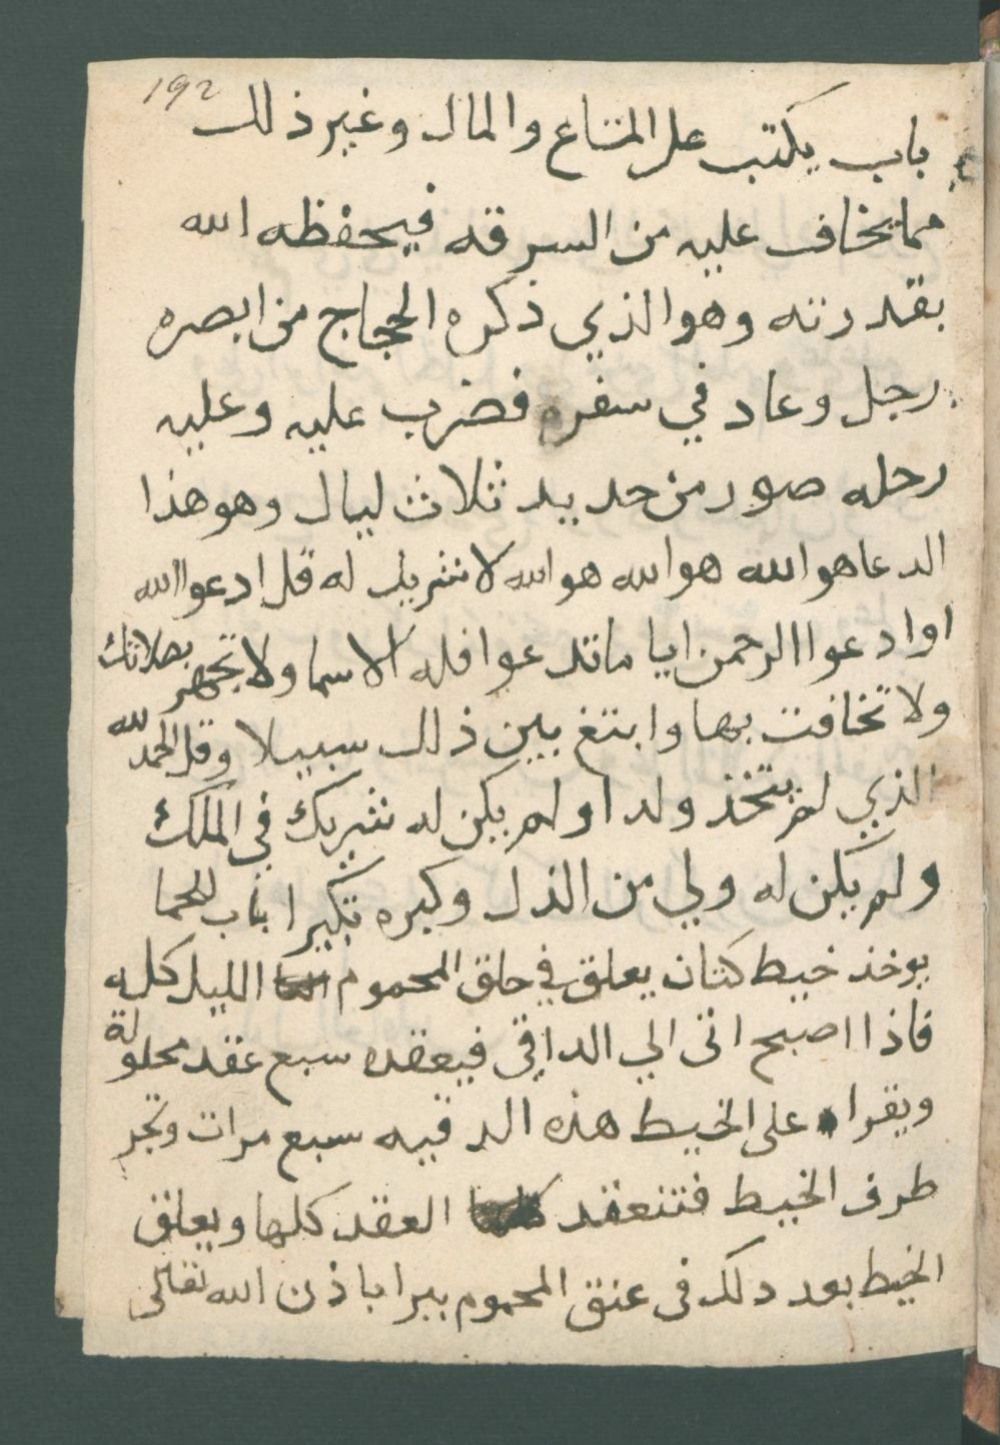 192
باب يكتب على المتاع والمال وغير ذلك
مما يخاف عليه من السرقه فيحفظه الله
بقدرته وهو الذي ذكره الحجاج من ابصره
رجل وعاد في سفره فضرب عليه وعليه
رحله صور من حديد ثلاث ليال وهو هذا
الدعا هو الله هو الله هو الله لا شريك له قل ادعوا الله
او ادعوا الرحمن ايا ما تدعوا فله الاسما ولا تجهر بصلاتك
ولا تخافت بها وابتغ بين ذلك سبيلا وقل الحمد لله
الذي لم يتخذ ولدا ولم يكن له شريك في الملك
ولم يكن له ولي من الذل وكبره تكبيرا باب للحما
يوخذ خيط كتان يعلق في حلق المحموم الليل كله
فاذا اصبح اتى الي الداقي فيعقده سبع عقد محلولة
ويقرا على الخيط هذه الدقيه سبع مرات وتجر
طرف الخيط فتنعقد العقد كلها ويعلق
الخيط بعد دلك في عنق المحموم يبرا باذن الله تعالى